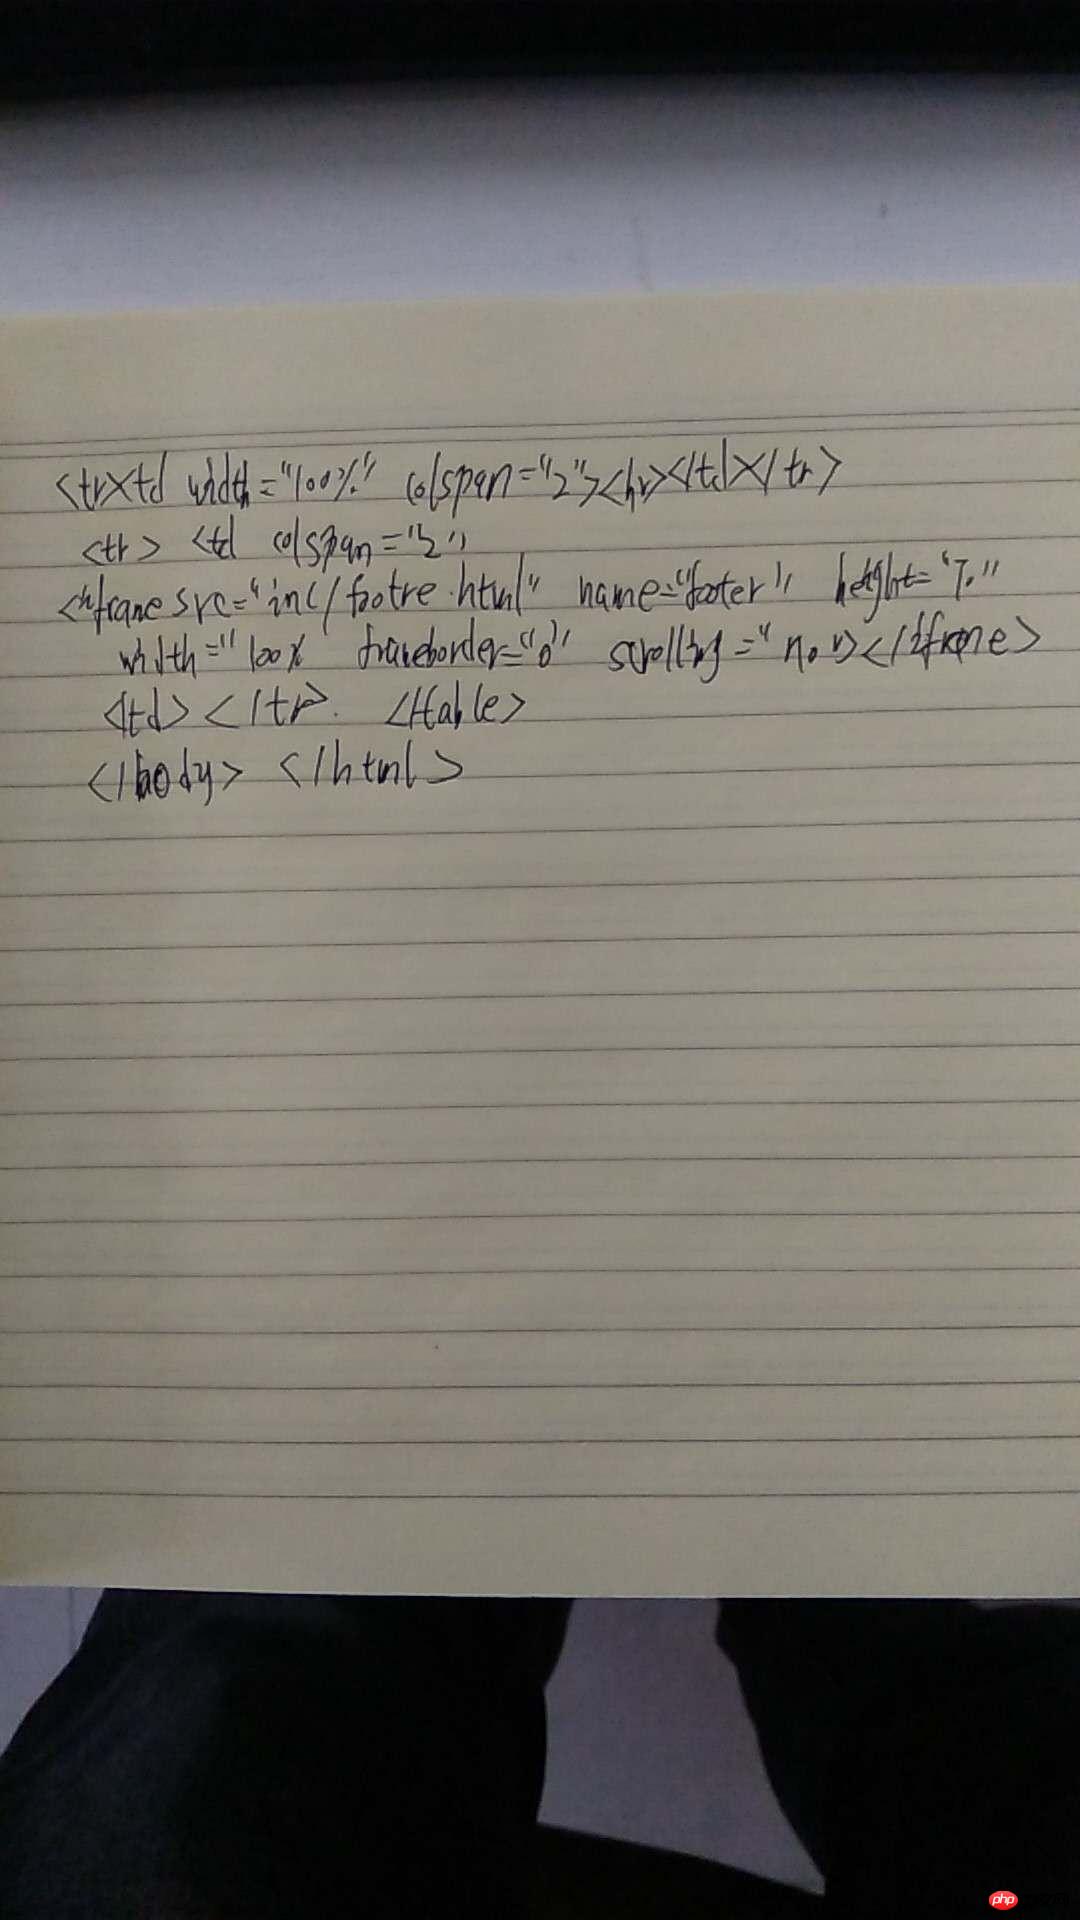 <tr><td width="100%" colspan="2"><hr></td></tr>
<tr> <td colspan="2"
<iframe src="inc/footre.html" name="footer" height="70"
width="100% frameborder="0" scrolling="no"></iframe>
</td></tr>. </table>
</body> </html>
php